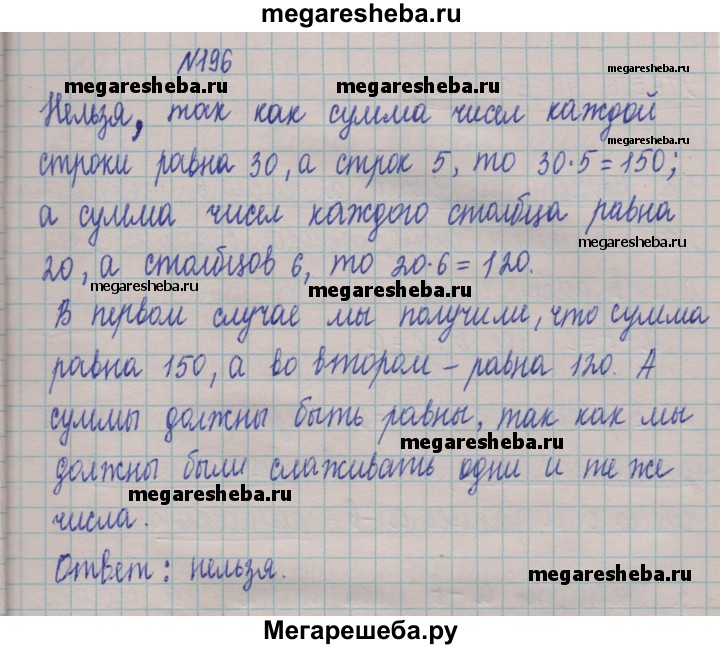 megaresheba.ru
№196
megaresheba.ru
megaresheba.ru
megaresheba.ru
Нельзя, так как сумма чисел каждой
megaresheba.ru
строки равна 30, а строк 5, то 30·5=150;
а сумма чисел каждого столбца равна
megaresheba.ru
20, а столбцов 6, то 20·6=120.
megaresheba.ru
megaresheba.ru
В первом случае мы получили, что сумма
равна 150, а во втором – равна 120. А
суммы должны быть равны, так как мы
megaresheba.ru
должны были слаживать одни и те же
megaresheba.ru
числа.
Ответ: нельзя.
megaresheba.ru
Мегарешеба.ру